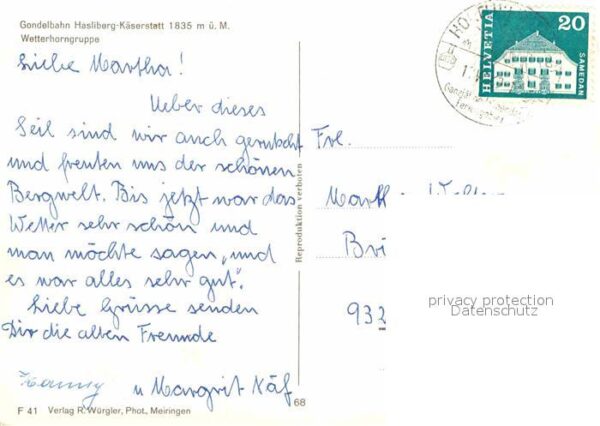 Gondelbahn Hasliberg-Käserstatt 1835 m ü. M.
Wetterhorngruppe
Liebe Martha!
Ueber dieses
Seil sind wir auch gerutscht
und freuten uns der schönen
Bergwelt. Bis jetzt war das
Wetter sehr schön und
man möchte sagen „und
es war alles sehr gut".
Liebe Grüsse senden
Dir die alten Freunde
u Margrit Käf
F 41 Verlag R. Würgler, Phot., Meiringen
68
Reproduktion verboten
HELVETIA
20
SAMEDAN
Frl.
Marth
Bri
932
privacy protection
Datenschutz